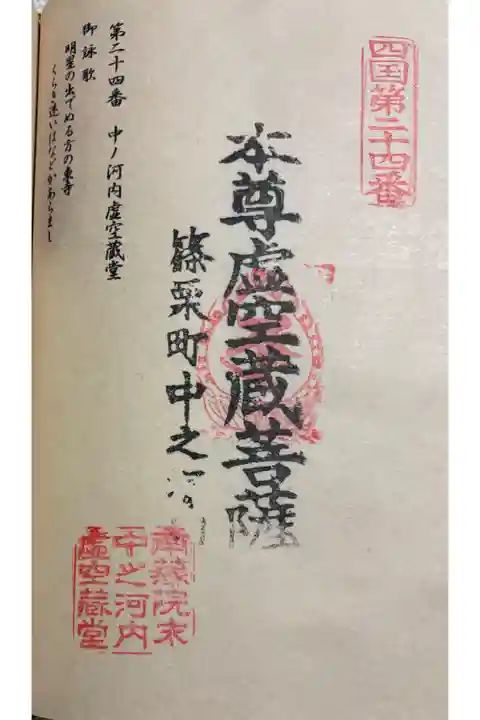 四国第二十四番
本尊虚空蔵菩薩
篠栗町中之河
南蔵院末
中之河内
虚空蔵堂
第二十四番 中ノ河内虚空蔵堂
御詠歌
明星の出でぬる方の東寺
くらき迷いはなどかあらまし